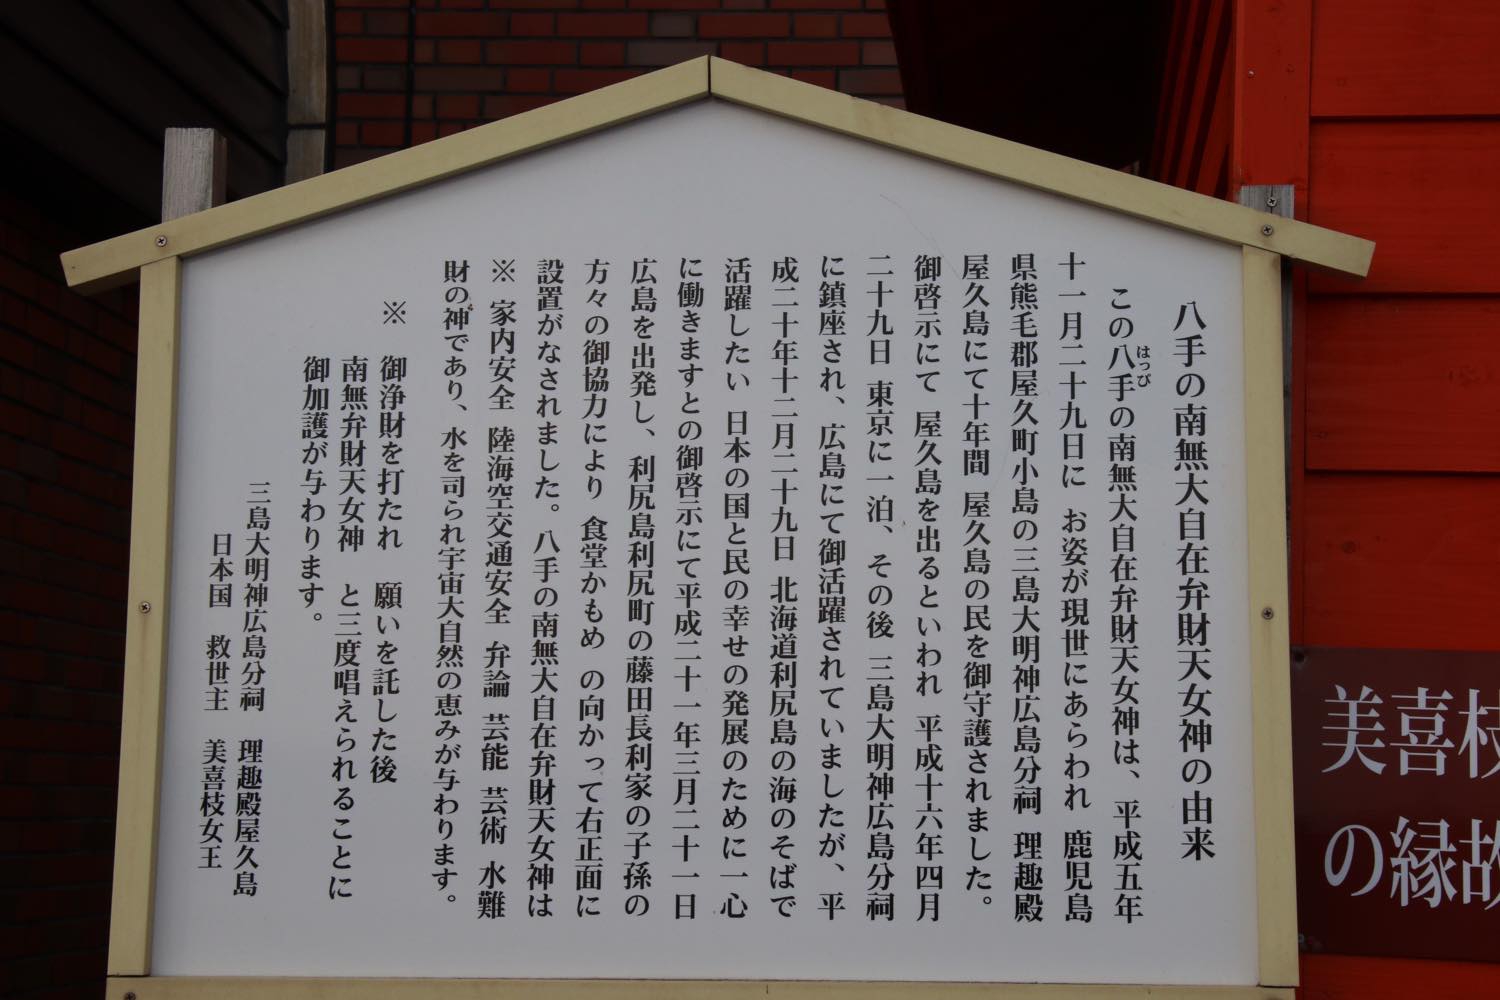 八手の南無大自在弁財天女神の由来
この八手の南無大自在弁財天女神は、平成五年
はっぴ
十一月二十九日に お姿が現世にあらわれ 鹿児島
県熊毛郡屋久町小島の三島大明神広島分祠 理趣殿
屋久島にて十年間 屋久島の民を御守護されました。
御啓示にて 屋久島を出るといわれ 平成十六年四月
二十九日 東京に一泊、その後 三島大明神広島分祠
に鎮座され、広島にて御活躍されていましたが、平
成二十年十二月二十九日 北海道利尻島の海のそばで
活躍したい 日本の国と民の幸せの発展のために一心
に働きますとの御啓示にて平成二十一年三月二十一日
広島を出発し、利尻島利尻町の藤田長利家の子孫の
方々の御協力により 食堂かもめ の向かって右正面に
設置がなされました。八手の南無大自在弁財天女神は
※ 家内安全 陸海空交通安全 弁論 芸能 芸術 水難
財の神であり、水を司られ宇宙大自然の恵みが与わります。
※ 御浄財を打たれ 願いを託した後
南無弁財天女神 と三度唱えられることに
御加護が与わります。
三島大明神広島分祠 理趣殿屋久島
日本国 救世主 美喜枝女王
美喜枝
の縁故